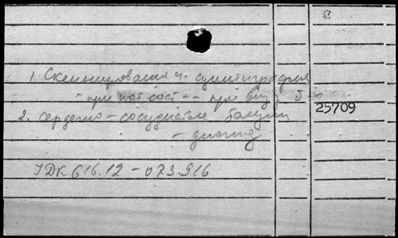 1. Сканирование и сцинтиграфия
- при пат. сост. -- при
25709
2. Сердечно-сосудистые болезни
- диагноз
УДК 616.12-073.916